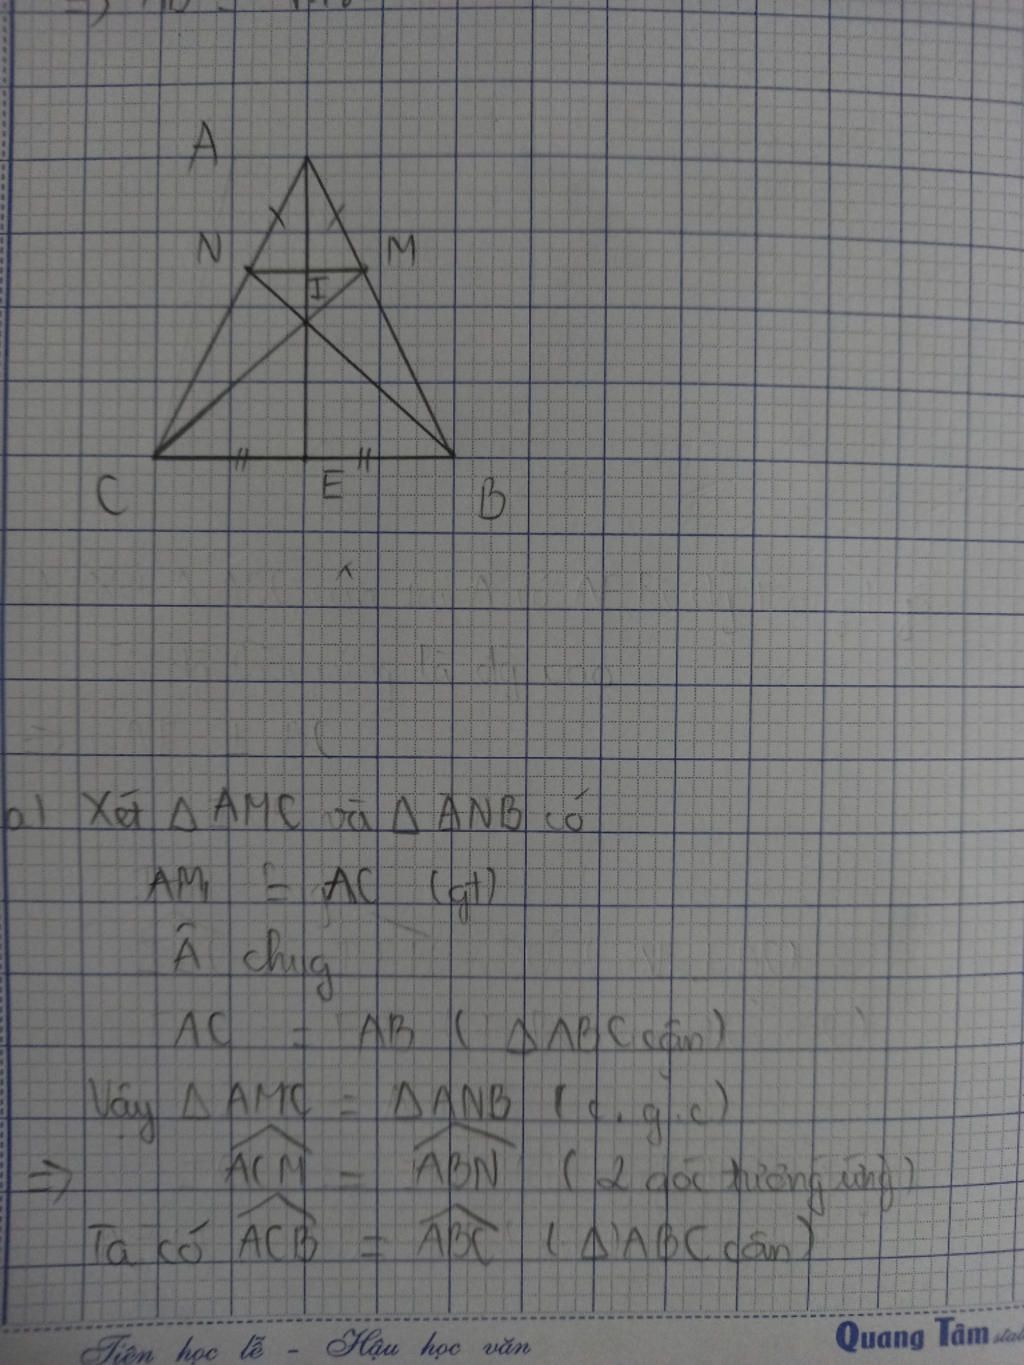 A
N
M
I
C
E
B
a) Xét Δ AMC và Δ ANB có
AM = AC (gt)
Â chug
AC = AB ( Δ ABC cân)
Vậy Δ AMC = Δ ANB (c.g.c)
=> ACM = ABN ( 2 góc tương ứng)
Ta có ACB = ABC ( Δ ABC cân)
Tiên học lễ - Hậu học văn
Quang Tâm